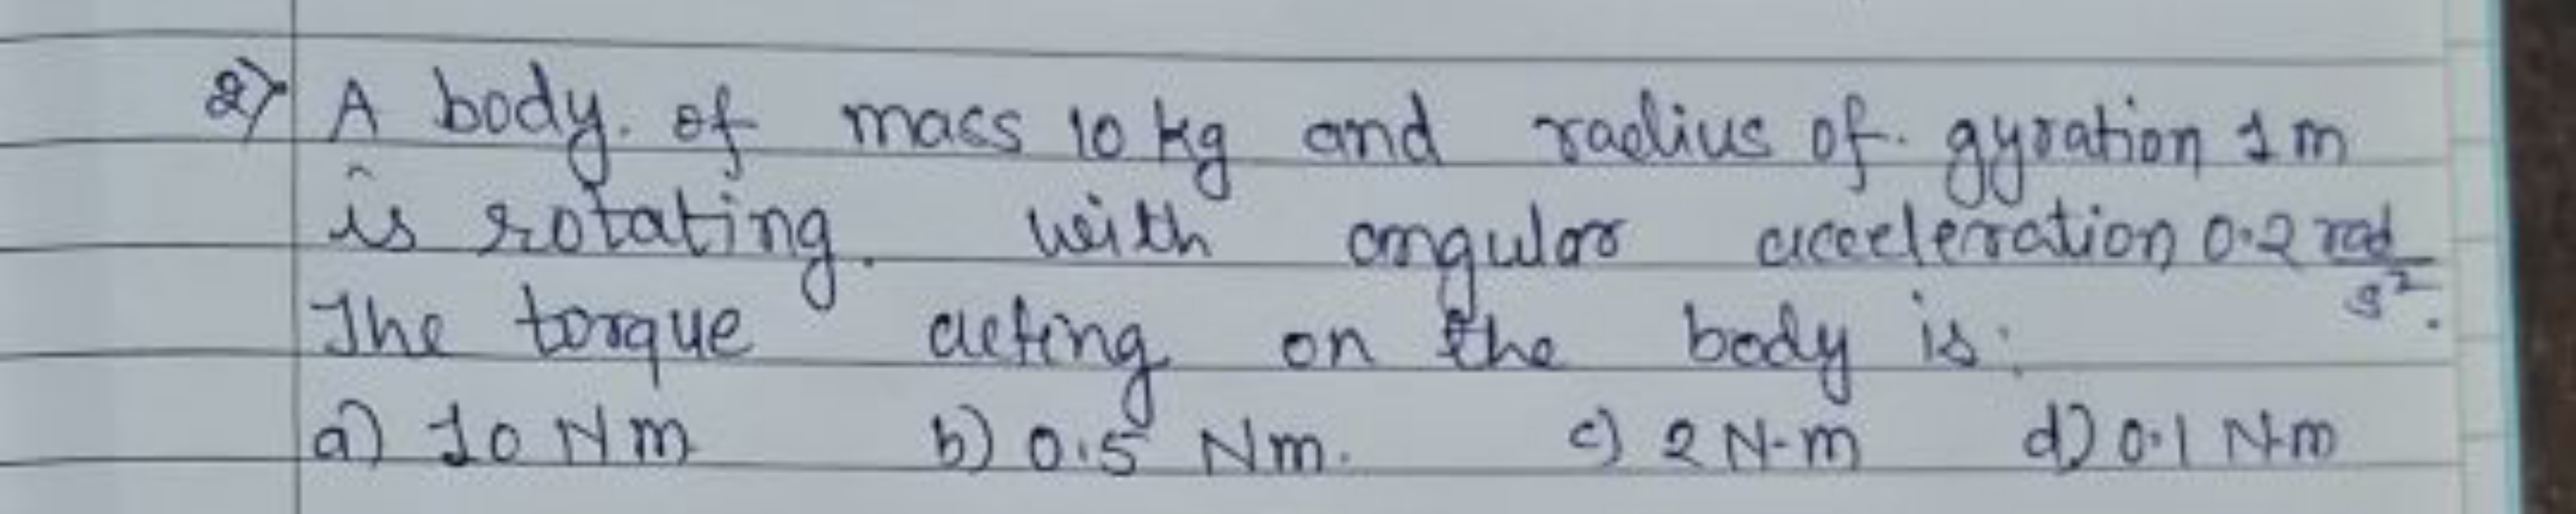 2) A body. of mass 10 kg and radius of gyration 1 m
is rotating. with angular acceleration 0.2 rad/s².
The torque acting on the body is:
a) 10 Nm b) 0.5 Nm. c) 2 N-m d) 0.1 N-m